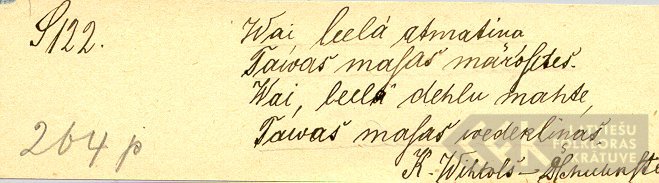 S122.
Wai, leelá atmatina
Tawas masas márosites.
Wai, leelá dehlu mahte,
Tawas masas wedeklinas.
264 p
K. Wihtols –
LATVIEŠU
FOLKLORAS
KRĀTUVE